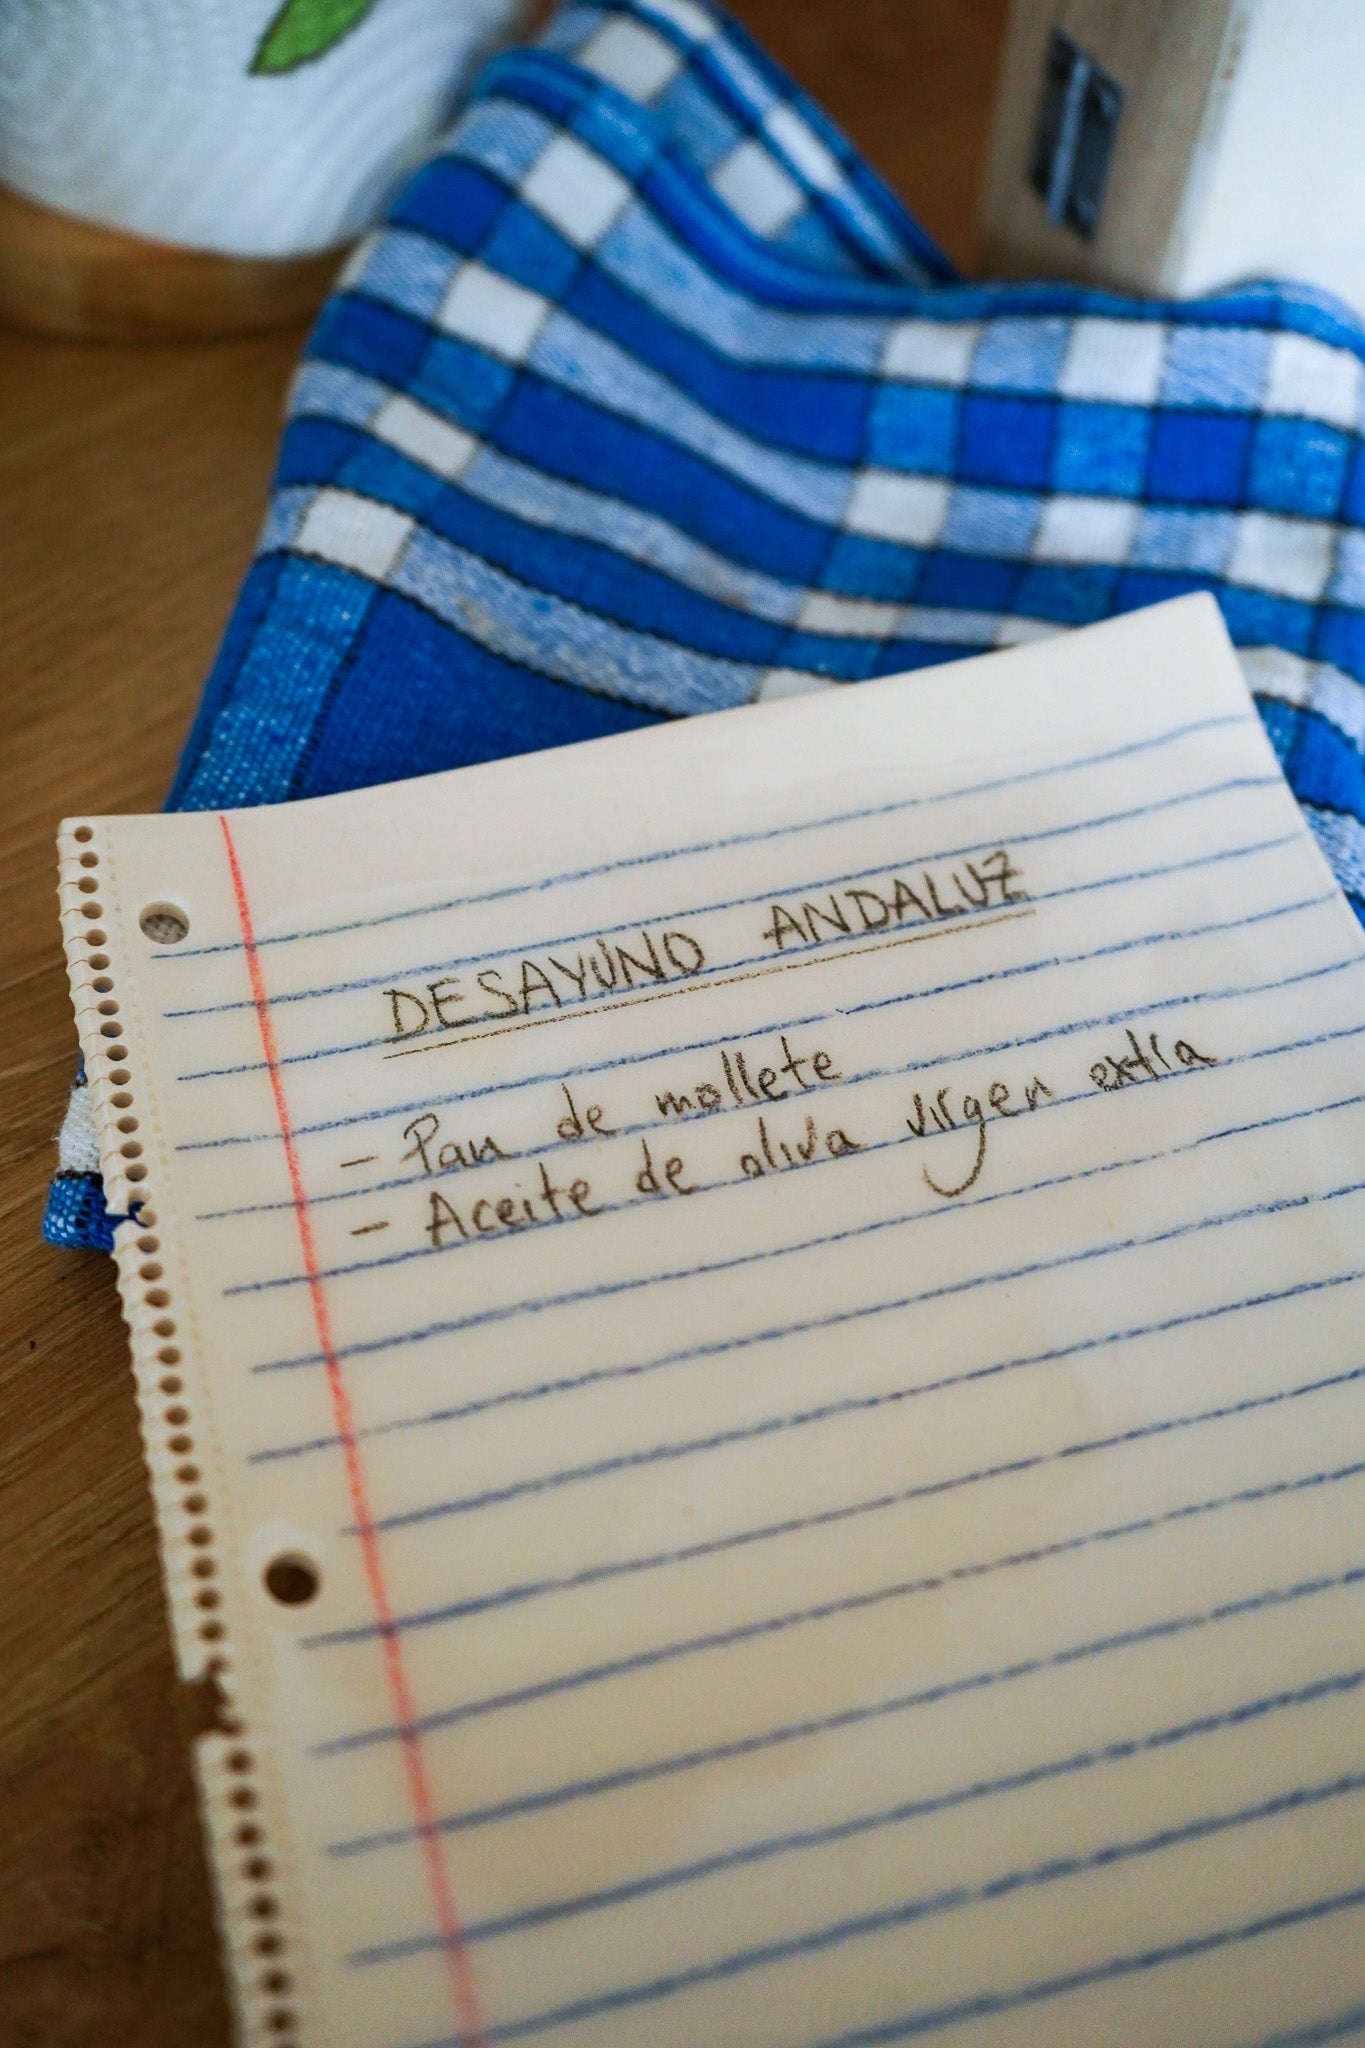 DESAYUNO ANDALUZ
- Pan de mollete
- Aceite de oliva virgen extra